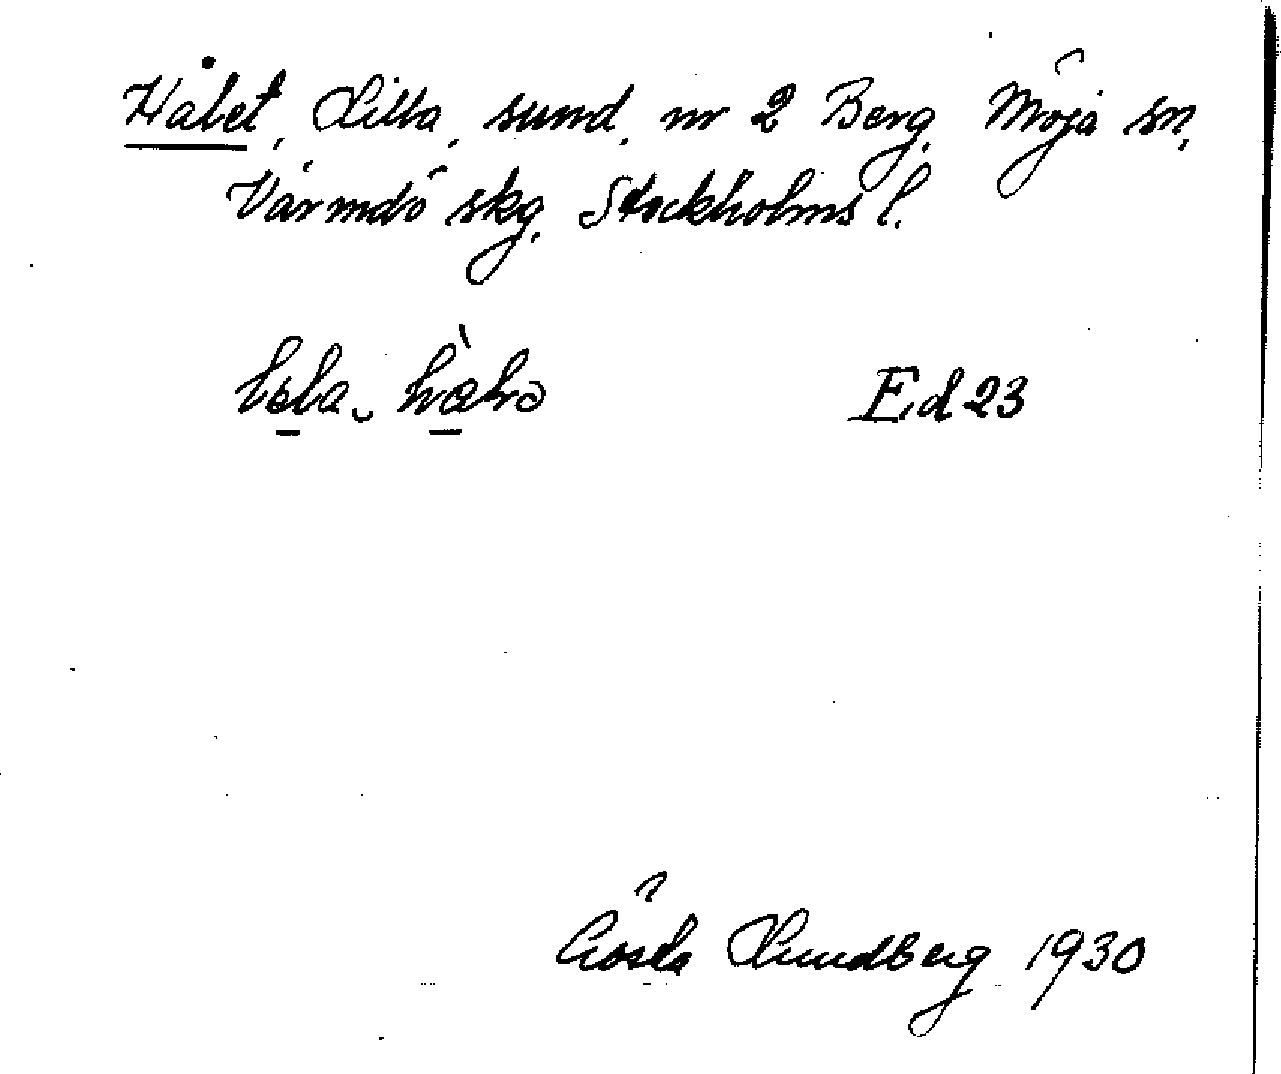 Hålet, Lilla, sund, nr 2 Berg, Möja sn,
Värmdö skg, Stockholms l.
Ed 23
Gösta Lundberg 1930